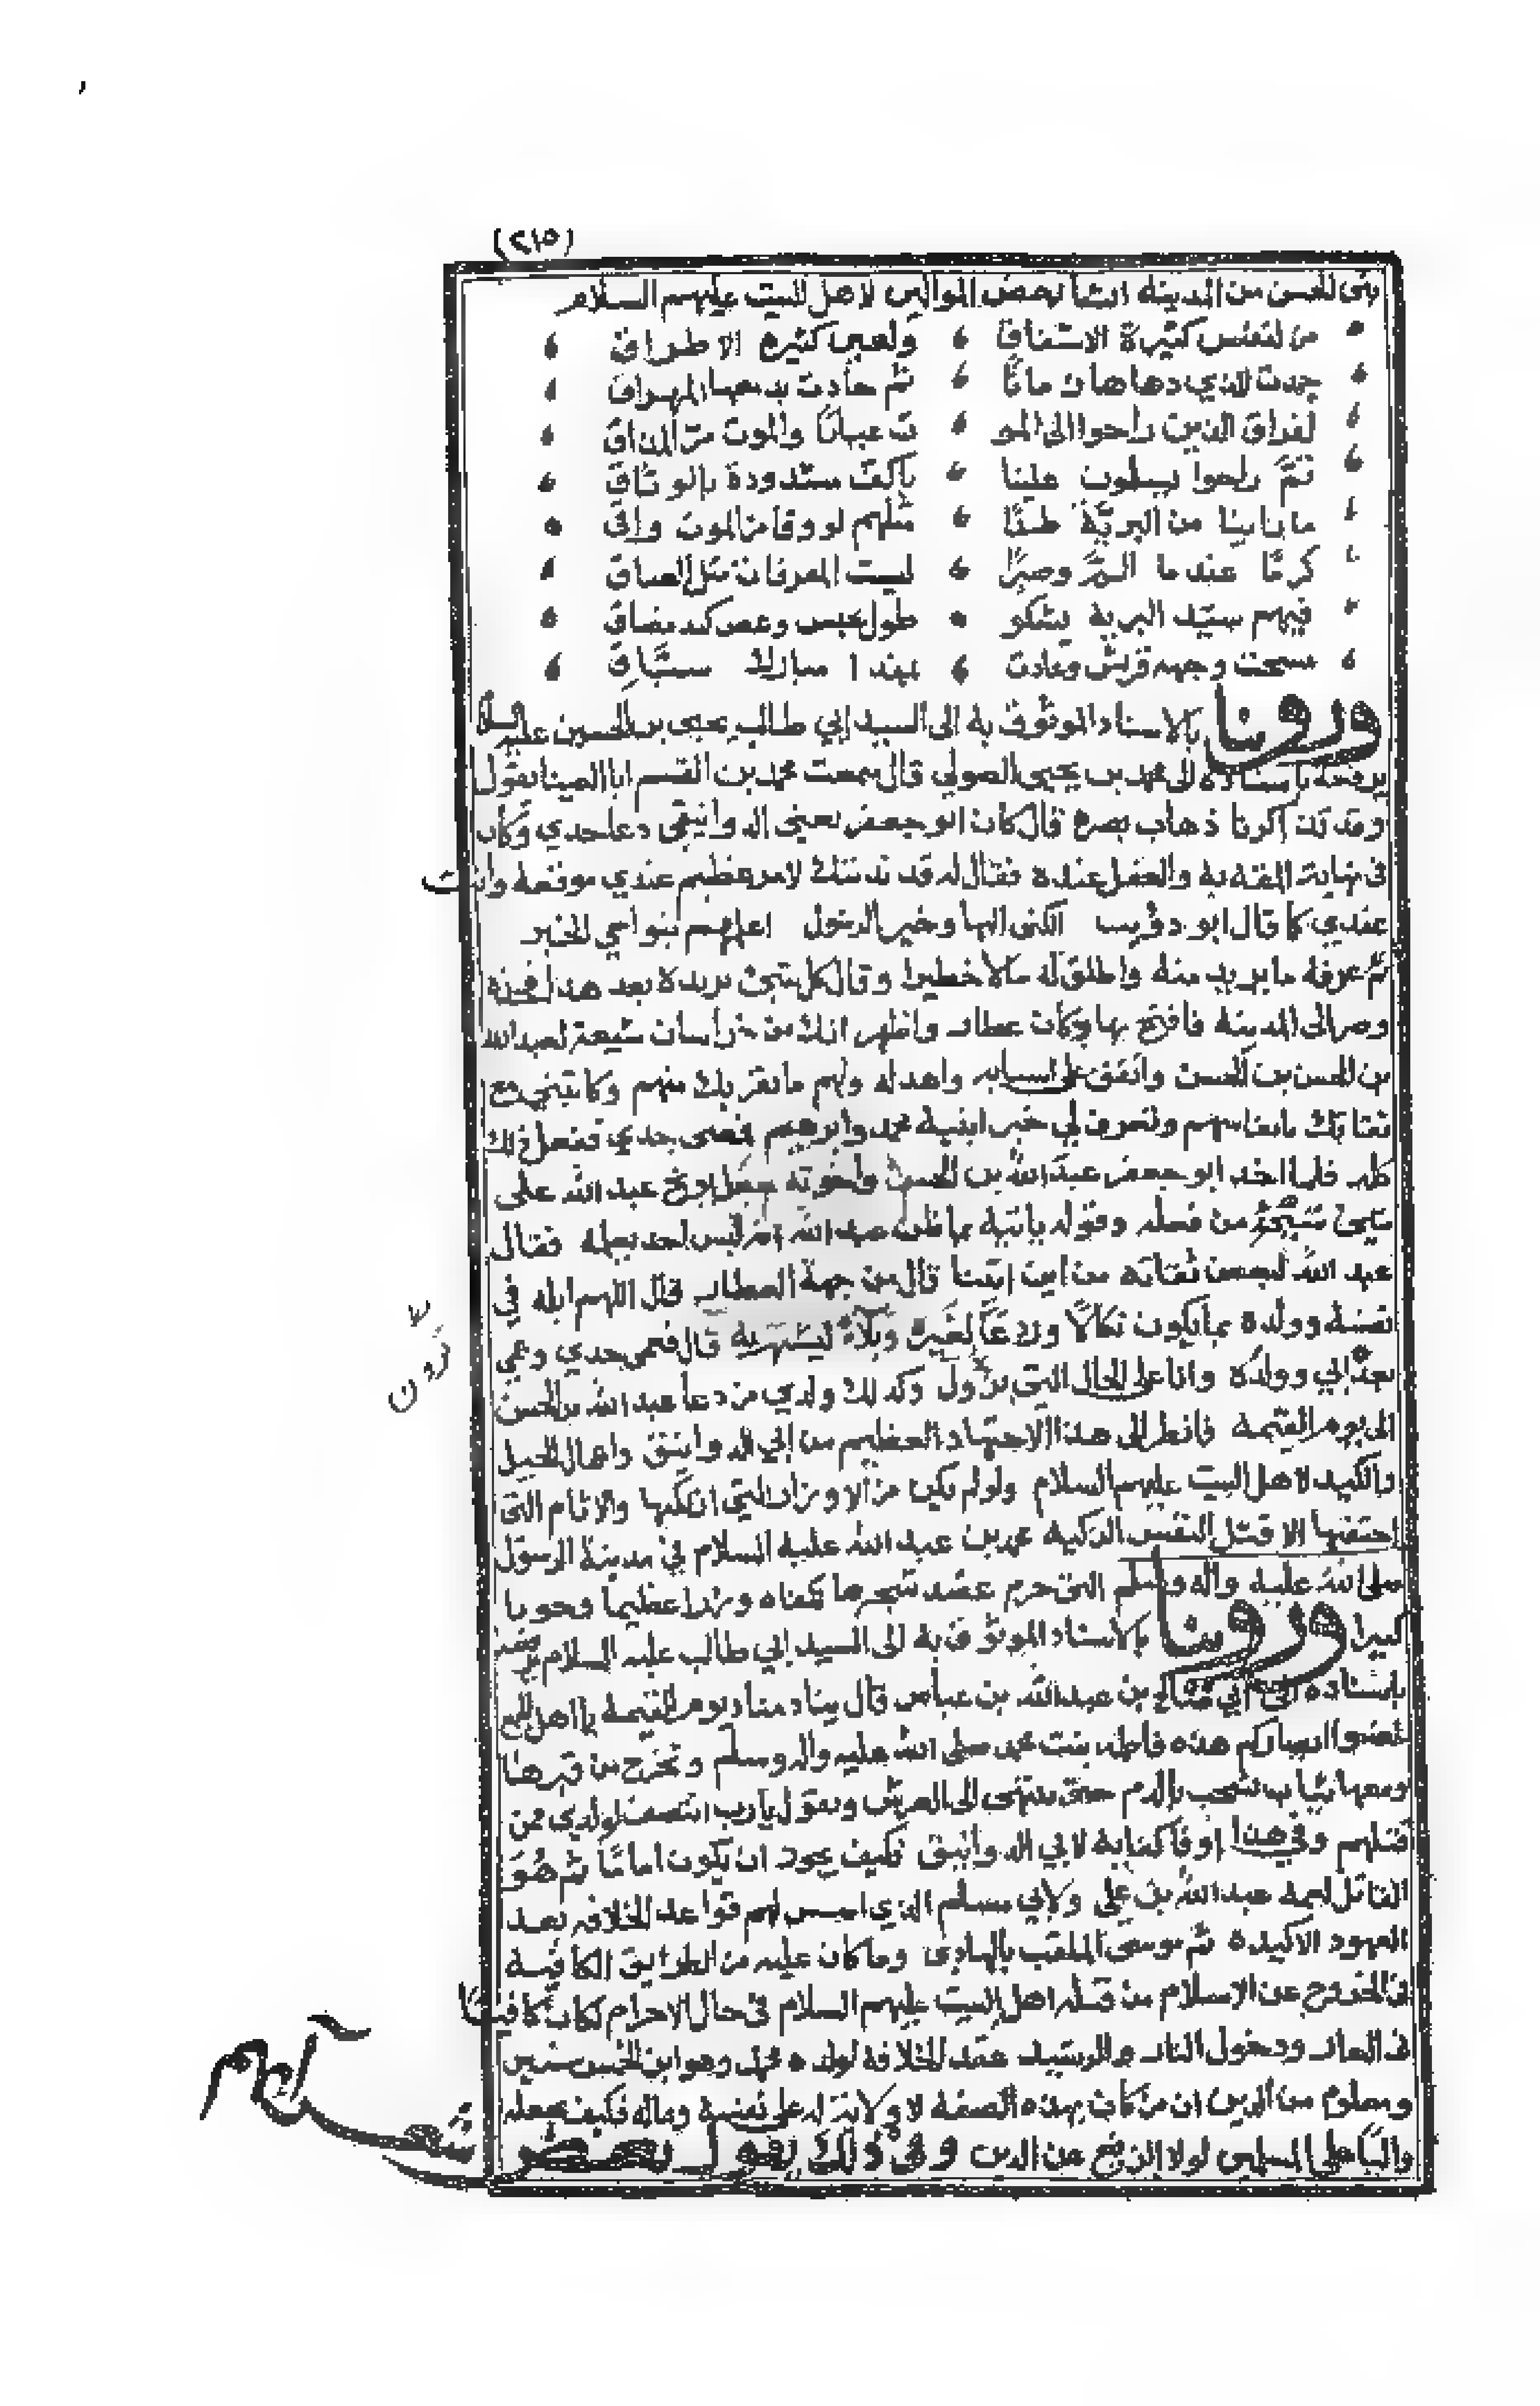 (٢١٥)
بني الحسن من المدينة انشأ بعض الموالين لاهل البيت عليهم السلام
من لنفس كثيرة الاشفاق ولعين كثيرة الاطراق
جمدت للذي دهاها زمانًا ثم عادت بدمعها المهراق
لفراق الذين راحوا الى المو ت عيانًا والموت مرّ المذاق
ثمّ راحوا يسلمون علينا باكفّ مشدودة بالوثاق
ما راينا من البريّة طرًا مثلهم لو وقا من الموت واق
كرمًا عندما الم وصبرًا ليت المعرفات مثل العناق
فيهم سيّد البرية يشكو طول حبس وعض كبد مضاق
مسحت وجهه قريش وعادت بهذا مبارك سبّاق
وروينا بالاسناد الموثوق به الى السيد ابي طالب يحيى بن الحسين عليه السلام
يرفعه باسناده الى محمد بن يحيى الصولي قال سمعت محمد بن القسم ابا العينا يقول
وقد تذاكرنا ذهاب بصره قال كان ابو جعفر يعني الدوانيقي دعا جدي وكان
في نهاية الثقة به والعقل عنده فقال له قد ندبتك لامر عظيم عندي موقعه وانت
عندي كما قال ابو ذؤيب الكني اليها وخير الرسول اعلمهم بنواحي الخبر
ثم عرفه ما يريد منه واطلق له مالا خطيرا وقال كل شيئ تريده بعد هذا فخذه
وصر الى المدينة فافتح بها دكان عطار واظهر انك من خراسان شيعة لعبد الله
بن الحسن بن الحسن وانفق على اسبابه واهد له ولهم ما تقربك منهم وكاتبني مع
ثقاتك بانفاسهم وتعرف لي خبر ابنيه محمد وابرهيم فمضى جدي ففعل ذلك
كله فلما اخذ ابو جعفر عبد الله بن الحسن واخوته جعل يوبخ عبد الله على
شيئ شيئ من فعله وقوله ياتيه بما ظن عبد الله انه ليس احد يعلمه فقال
عبد الله لبعض ثقاته من اين اتينا قال من جهة العطار قال اللهم ابله في
نفسه وولده بما يكون نكالًا وردعًا لغيره وبلاءً ليشتهر به قال فعمي جدي وعمي
بعده ابي وولده وانا على الحال التي ترون وكذلك ولدي من دعا عبد الله بن الحسن
ترون
الى يوم القيمة فانظر الى هذا الاجتهاد العظيم من ابي الدوانيق واعمال الحيل
والكيد لاهل البيت عليهم السلام ولو لم يكن من الاوزار التي ارتكبها والاثام التي
احتقبها الا قتل النفس الزكية محمد بن عبد الله عليه السلام في مدينة الرسول
صلى الله عليه واله وسلم التي حرم عضد شجرها لكفاه وزرًا عظيما وحوبا
كبيرا وروينا بالاسناد الموثوق به الى السيد ابي طالب عليه السلام يرفعه
باسناده الى ابي صالح بن عبد الله بن عباس قال ينادي مناد يوم القيمة يا اهل الجمع
غضوا ابصاركم هذه فاطمة بنت محمد صلى الله عليه واله وسلم وتخرج من قبرها
ومعها ثياب تشخب بالدم حتى تنتهي الى العرش وتقول يا رب انتصف لولدي ممن
قتلهم وفي هذا اوفا كفاية لابي الدوانيق فكيف يجوز ان يكون امامًا ثم هُوَ
القاتل لعمه عبد الله بن علي ولابي مسلم الذي اسس لهم قواعد الخلافه بعد
العهود الاكيدة ثم موسى الملقب بالهادى وما كان عليه من الطرايق الكافية
في الخروج عن الاسلام من قتله اهل البيت عليهم السلام في حال الاحرام لكان كافيًا
في العار ودخول النار والرشيد عقد الخلافة لولده محمد وهو ابن الخمس سنين
ومعلوم من الدين ان من كان بهذه الصفة لا ولاية له على نفسه وماله فكيف يجعله
واليًا على المسلمين لولا الزيغ عن الدين وفي ذلك يقول بعض شعرائهم